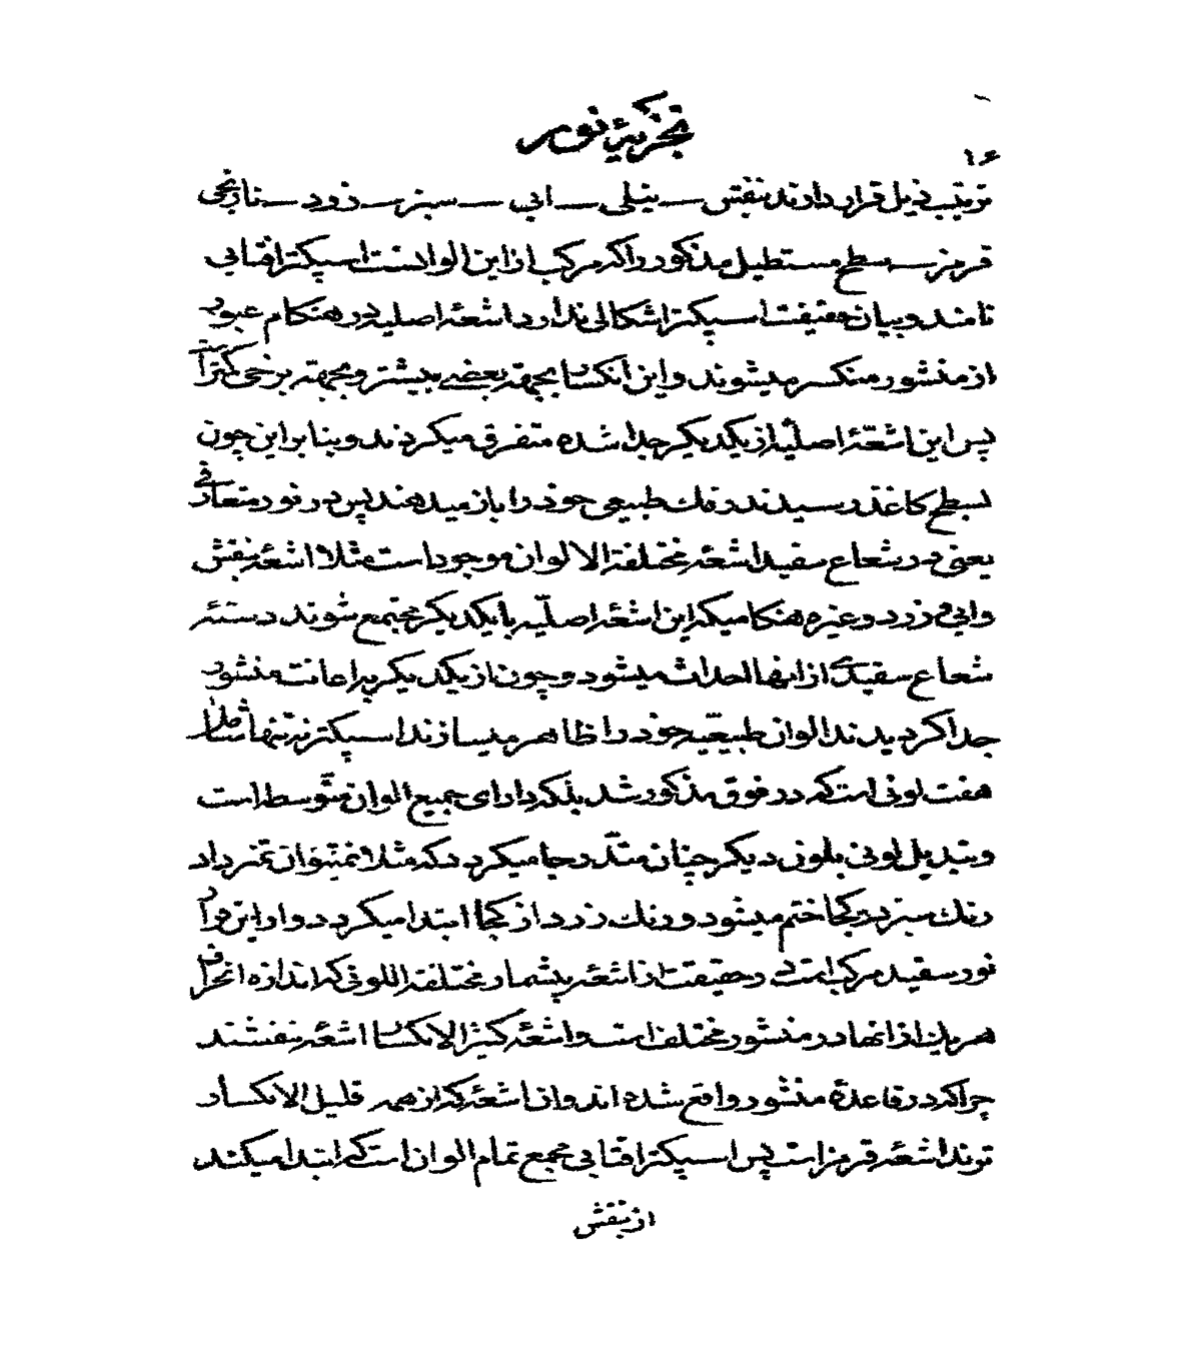 تجزیۀ نور
۱۶
ترتیب ذیل قرار دارند بنفش — نیلی — ابی — سبز — زرد — نارنجی
قرمز — سطح مستطیل مذکور را که مرکب از این الوانست اسپکتر افتابی
نامند و بیان حقیقت اسپکتر اشکالی ندارد اشعۀ اصلیه در هنکام عبور
از منشور منکسر میشوند و این انکسار بجهة بعضی بیشتر و بجهة برخی کمتر است
پس این اشعّۀ اصلیّه از یکدیکر جدا شده متفرق میکردند و بنابراین چون
بسطح کاغذ رسیدند رنك طبیعی خود را باز میدهند پس در نور متعارفی
یعنی در شعاع سفید اشعۀ مختلفة الالوان موجود است مثلا اشعۀ بنفش
و ابی و زرد و غیره هنکامیکه این اشعۀ اصلیّه با یکدیکر مجتمع شوند دستۀ
شعاع سفیدی از انها احداث میشود و چون از یکدیکر باعانت منشور
جدا کردیدند الوان طبیعیّه خود را ظاهر میسازند اسپکتر نه تنها شامل
هفت لونی است که در فوق مذکور شد بلکه دارای جمیع الوان متوسطه است
و تبدیل لونی بلون دیکر چنان متدّرجا میکردد که مثلا نمیتوان تمیز داد
رنك سبز در کجا ختم میشود و رنك زرد از کجا ابتدا میکردد و از اینقرار
نور سفید مرکب است در حقیقت از اشعۀ بیشمار مختلفة اللونی که اندازه انحراف
هریك از انها در منشور مختلف است و اشعۀ کثیر الانکسار اشعۀ بنفشند
چرا که در قاعدۀ منشور واقع شده اند و ان اشعۀ که از همه قلیل الانکسار
ترند اشعۀ قرمز است پس اسپکتر افتابی مجمع تمام الوان است که ابتدا میکند
از بنفش